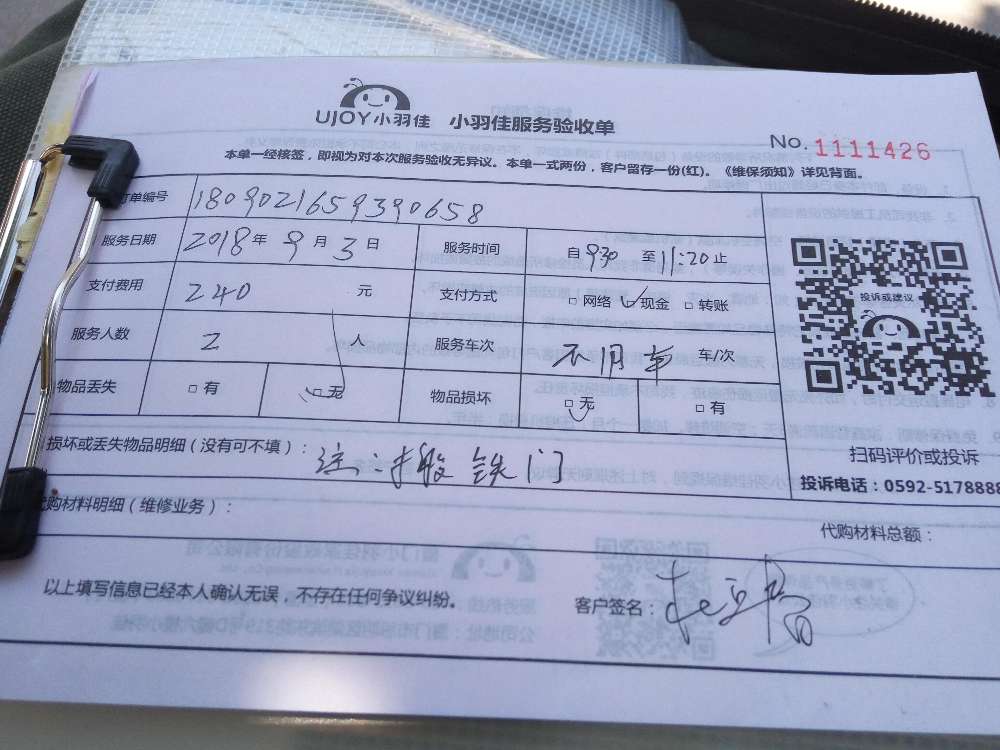 UJOY小羽佳 小羽佳服务验收单
No. 1111426
本单一经核签，即视为对本次服务验收无异议。本单一式两份，客户留存一份(红)。《维保须知》详见背面。
单编号 1809021659390658
服务日期 2018年9月3日 服务时间 自930至11:20止
支付费用 240 元 支付方式 □网络 □现金 □转账
投诉或建议
服务人数 2 人 服务车次 不用车 车/次
物品丢失 □有 □无 物品损坏 □无 □有
损坏或丢失物品明细（没有可不填）： 注：搬铁门
扫码评价或投诉
投诉电话：0592-5178888
购材料明细（维修业务）：
代购材料总额：
以上填写信息已经本人确认无误，不存在任何争议纠纷。
客户签名：